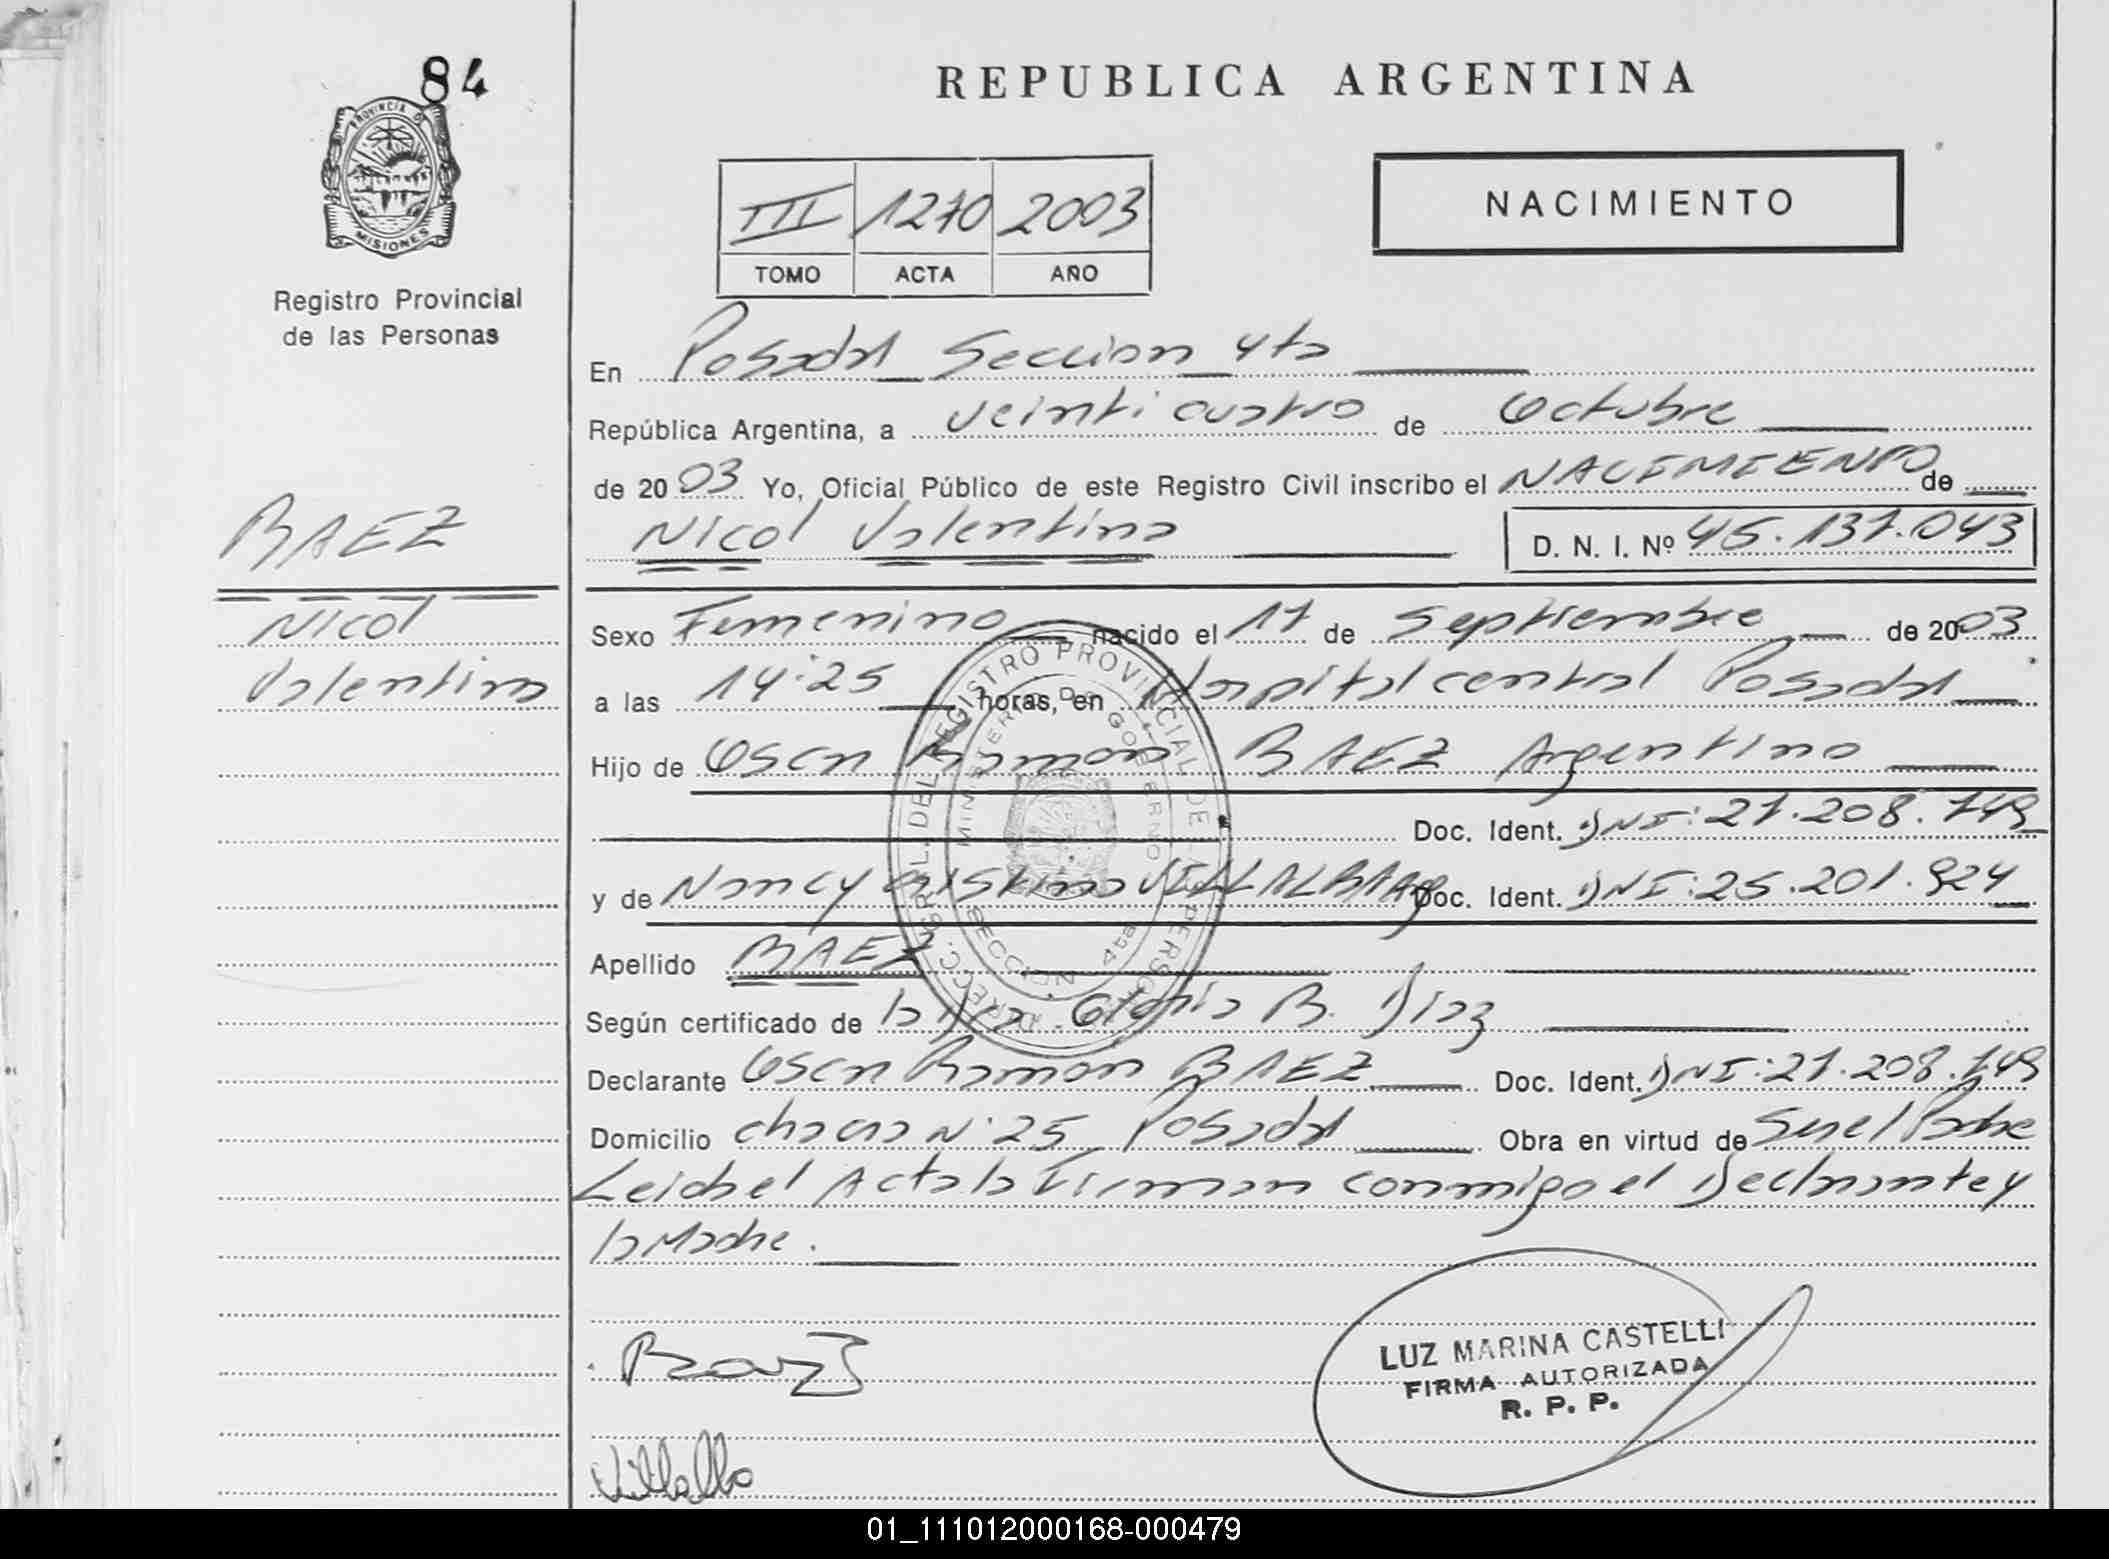 84
PROVINCIA D
MISIONES
Registro Provincial
de las Personas
BAEZ
Nicol
Valentina
REPUBLICA ARGENTINA
III 1270 2003
TOMO ACTA AÑO
NACIMIENTO
En Posadas Seccion 4ta
República Argentina, a veinticuatro de Octubre
de 2003 Yo, Oficial Público de este Registro Civil inscribo el NACIMIENTO de
Nicol Valentina D. N. I. Nº 45.137.043
Sexo Femenino nacido el 17 de Septiembre de 2003
a las 14:25 horas, en Hospital central Posadas
Hijo de Oscar Ramon BAEZ Argentino
Doc. Ident. DNI: 21.208.749
y de Nancy Cristina VILLALBA Arg Doc. Ident. DNI: 25.201.924
Apellido BAEZ
Según certificado de la Gloria B. Diaz
Declarante Oscar Ramon BAEZ Doc. Ident. DNI: 21.208.749
Domicilio chacra Nº 25 Posadas Obra en virtud de Ser el Padre
Leida el Acta la Firman conmigo el Declarante y
la Madre.
DIRECC. GRAL. DEL REGISTRO PROVINCIAL DE PERSONAS
MINISTERIO DE GOBIERNO
SECCION 4ta
LUZ MARINA CASTELLI
FIRMA AUTORIZADA
R. P. P.
Baez
Villalba
01_111012000168-000479